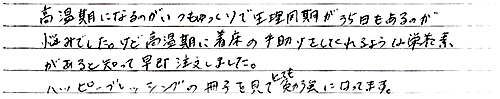 高温期になるのがいつもゆっくりで生理周期が35日もあるのが
悩みでした。けど高温期に着床の手助けをしてくれるような栄養素
があると知って早即注文しました。
ハッピーブレッシングの冊子を見てとても勉強になってます。